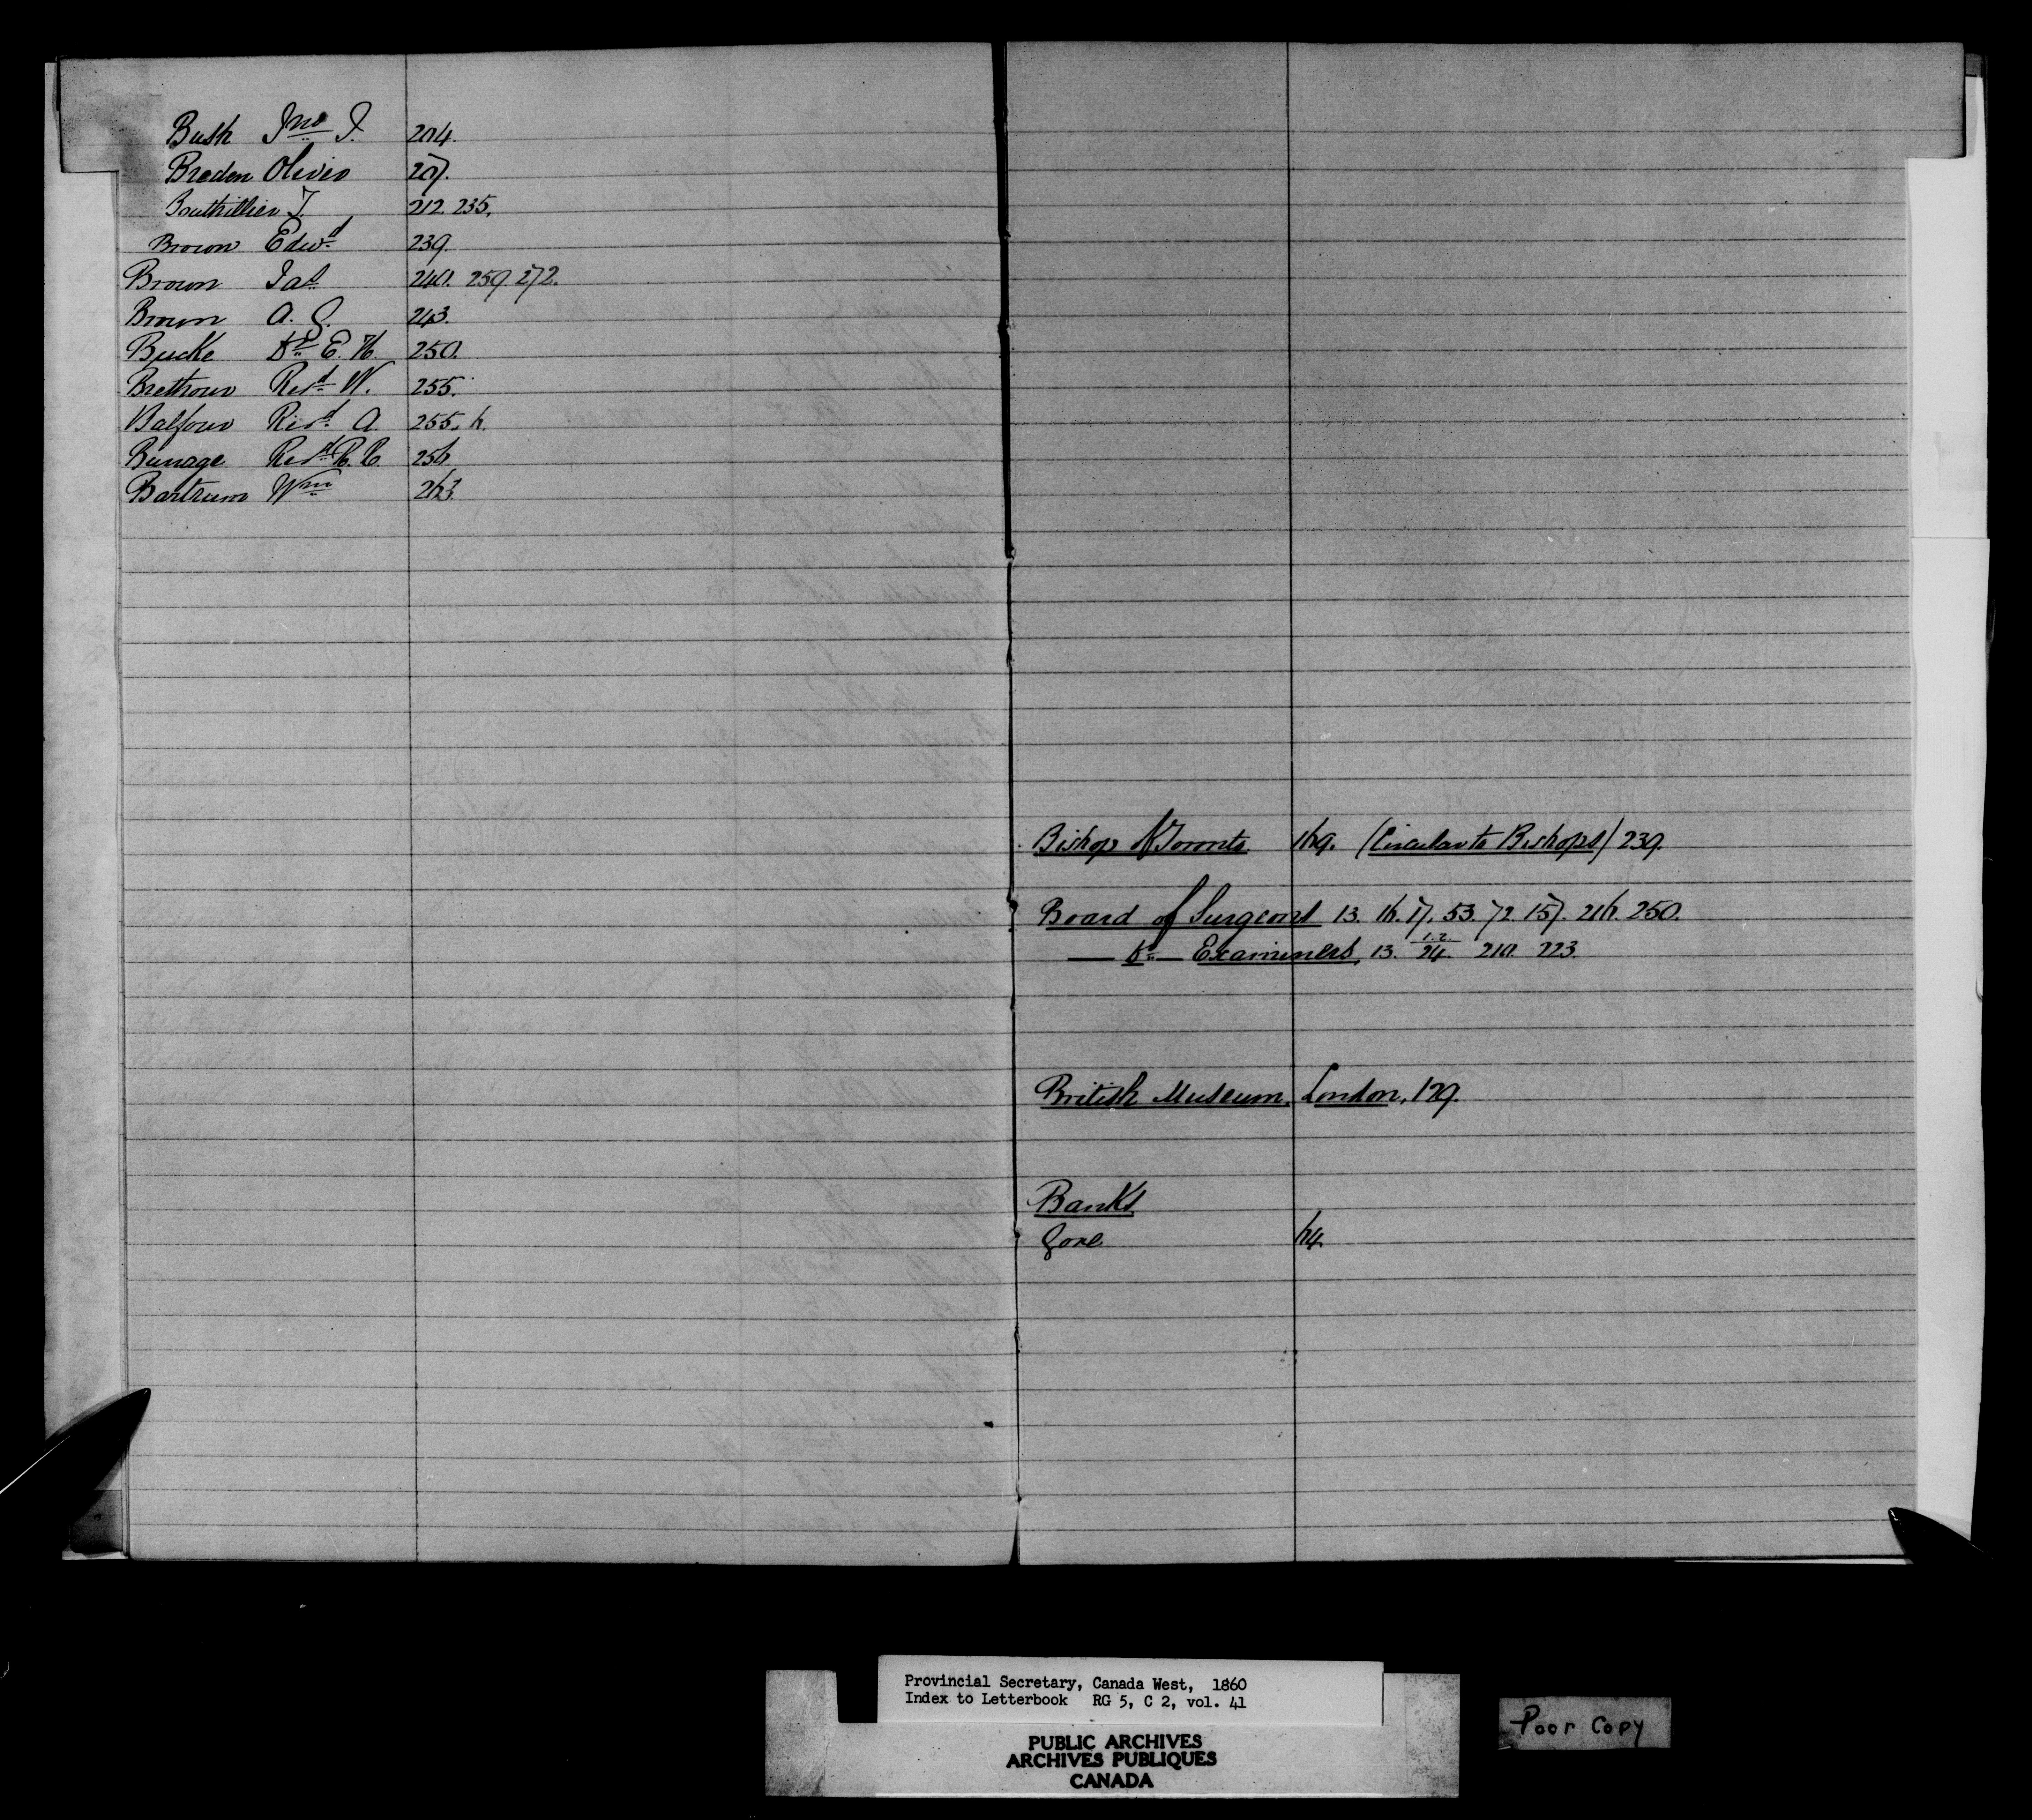 Bush Jno J. 204.
Breden Oliver 207.
Bouthillier T. 212. 235.
Brown Edwd 239.
Brown Jas 240. 259. 272.
Brown A. G. 243.
Bucke Dr E. H. 250.
Brethour Revd W. 255.
Balfour Revd A. 255. 6.
Burrage Revd R. R. 256
Bartrum Wm 263.
Bishop of Toronto 169. (Circular to Bishops) 239.
Board of Surgeons 13. 16. 17. 53. 72. 157. 216. 250.
— Do — Examiners, 13. 1.2. 24. 210. 223.
British Museum, London, 129.
Banks
Gore 64.
Provincial Secretary, Canada West, 1860
Index to Letterbook RG 5, C 2, vol. 41
PUBLIC ARCHIVES
ARCHIVES PUBLIQUES
CANADA
Poor Copy